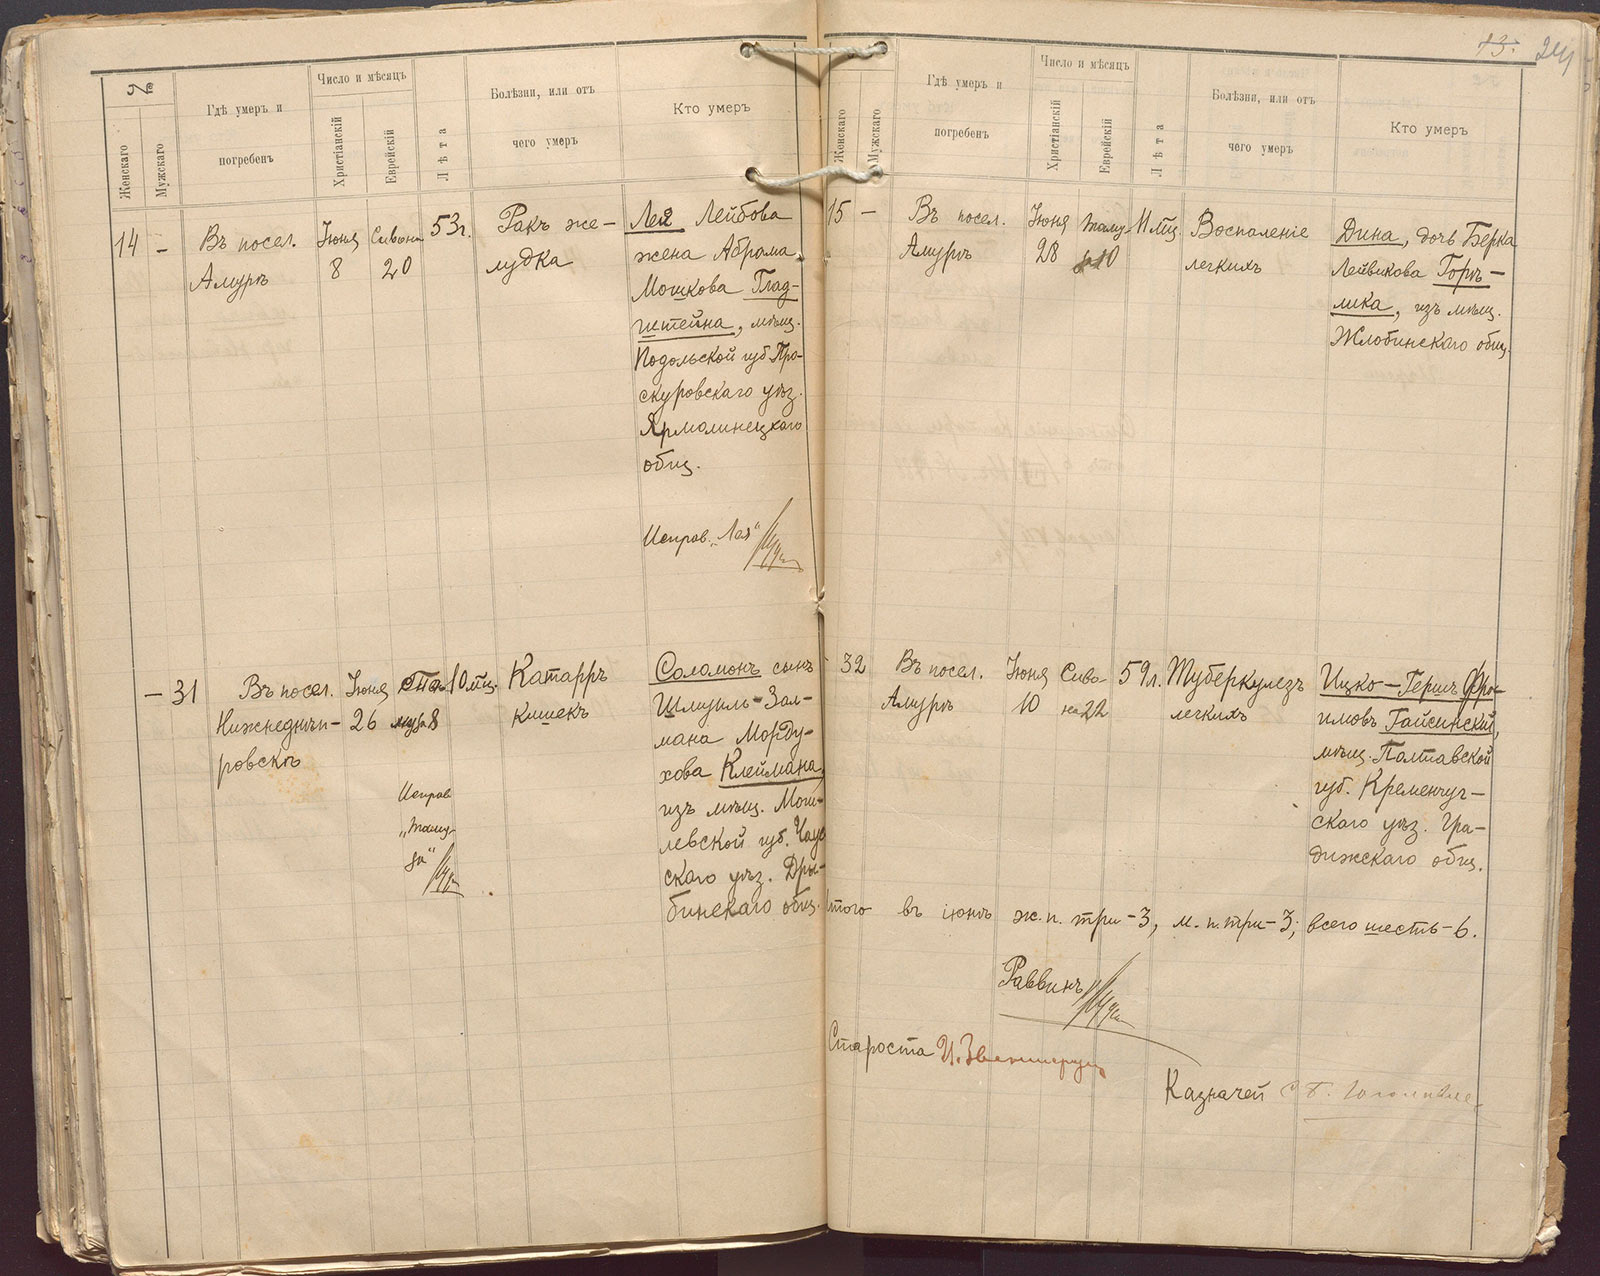 №
Женскаго
Мужскаго
Гдѣ умеръ и
погребенъ
Число и мѣсяцъ
Христіанскій
Еврейскій
Лѣта
Болѣзни, или отъ
чего умеръ
Кто умеръ
14 —
Въ посел.
Амуръ
Іюня
8
Сивона
20
53 г.
Ракъ же-
лудка
Лея Лейбова
жена Абрама
Мошкова Глад-
штейна, мѣщ.
Подольской губ. Про-
скуровскаго уѣз.
Ярмолинецкаго
общ.
Исправ. „Лея“
— 31
Въ посел.
Нижнеднѣп-
ровскъ
Іюня
26
Та-
муза 8
Исправ.
„таму-
за“
10 мц.
Катарръ
кишекъ
Соломонъ сынъ
Шмуиль-Зал-
мана Морду-
хова Клеймана,
изъ мѣщ. Моги-
левской губ. Чаус
скаго уѣз. Дри-
бинскаго общ.
13. 24
Женскаго
Мужскаго
Гдѣ умеръ и
погребенъ
Число и мѣсяцъ
Христіанскій
Еврейскій
Лѣта
Болѣзни, или отъ
чего умеръ
Кто умеръ
15 —
Въ посел.
Амуръ
Іюня
28
Таму-
за 10
11 мц.
Воспаленіе
легкихъ
Дина, дочь Берка
Лейвикова Горѣ-
лика, изъ мѣщ.
Жлобинскаго общ.
32
Въ посел.
Амуръ
Іюня
10
Сиво-
на 22
59 л.
Туберкулезъ
легкихъ
Ицко-Гершъ Фро-
имовъ Гайсинский,
мѣщ. Полтавской
губ. Кременчуг-
скаго уѣз. Гра-
дижскаго общ.
Итого въ іюнѣ ж. п. три-3, м. п. три-3; всего шесть-6.
Раввинъ
Староста И.
Казначей